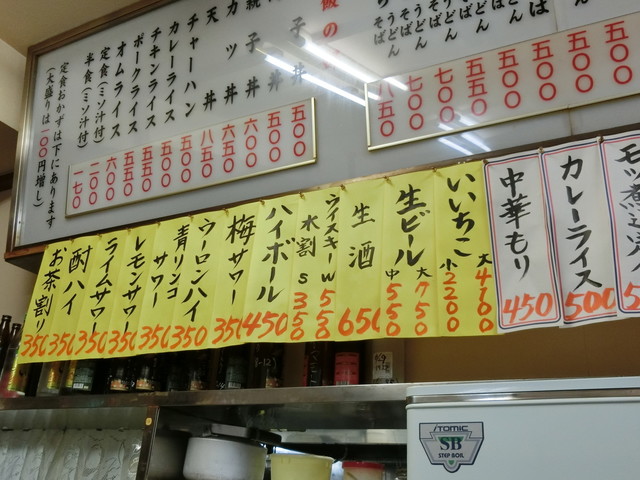 飯の
うどん
そば
うどん
そば
うどん
そば
八五〇
七〇〇
七〇〇
五五〇
五五〇
五〇〇
五〇〇
五〇〇
子丼
子丼
カツ丼
天丼
チャーハン
カレーライス
チキンライス
ポークライス
オムライス
定食(ミソ汁付)
半食(ミソ汁付)
定食おかずは下にあります
(大盛りは一〇〇円増し)
五〇〇
六〇〇
六五〇
八五〇
五五〇
五〇〇
五五〇
五五〇
六〇〇
二〇〇
一七〇
カレーライス
500
中華もり
450
いいちこ
大4700
小2200
生ビール
大750
中550
生酒
650
ウイスキーW550
水割S350
ハイボール
450
梅サワー
350
ウーロンハイ
350
青リンゴサワー
350
レモンサワー
350
ライムサワー
350
酎ハイ
350
お茶割り
350
TOMIC
SB
STEP BOIL